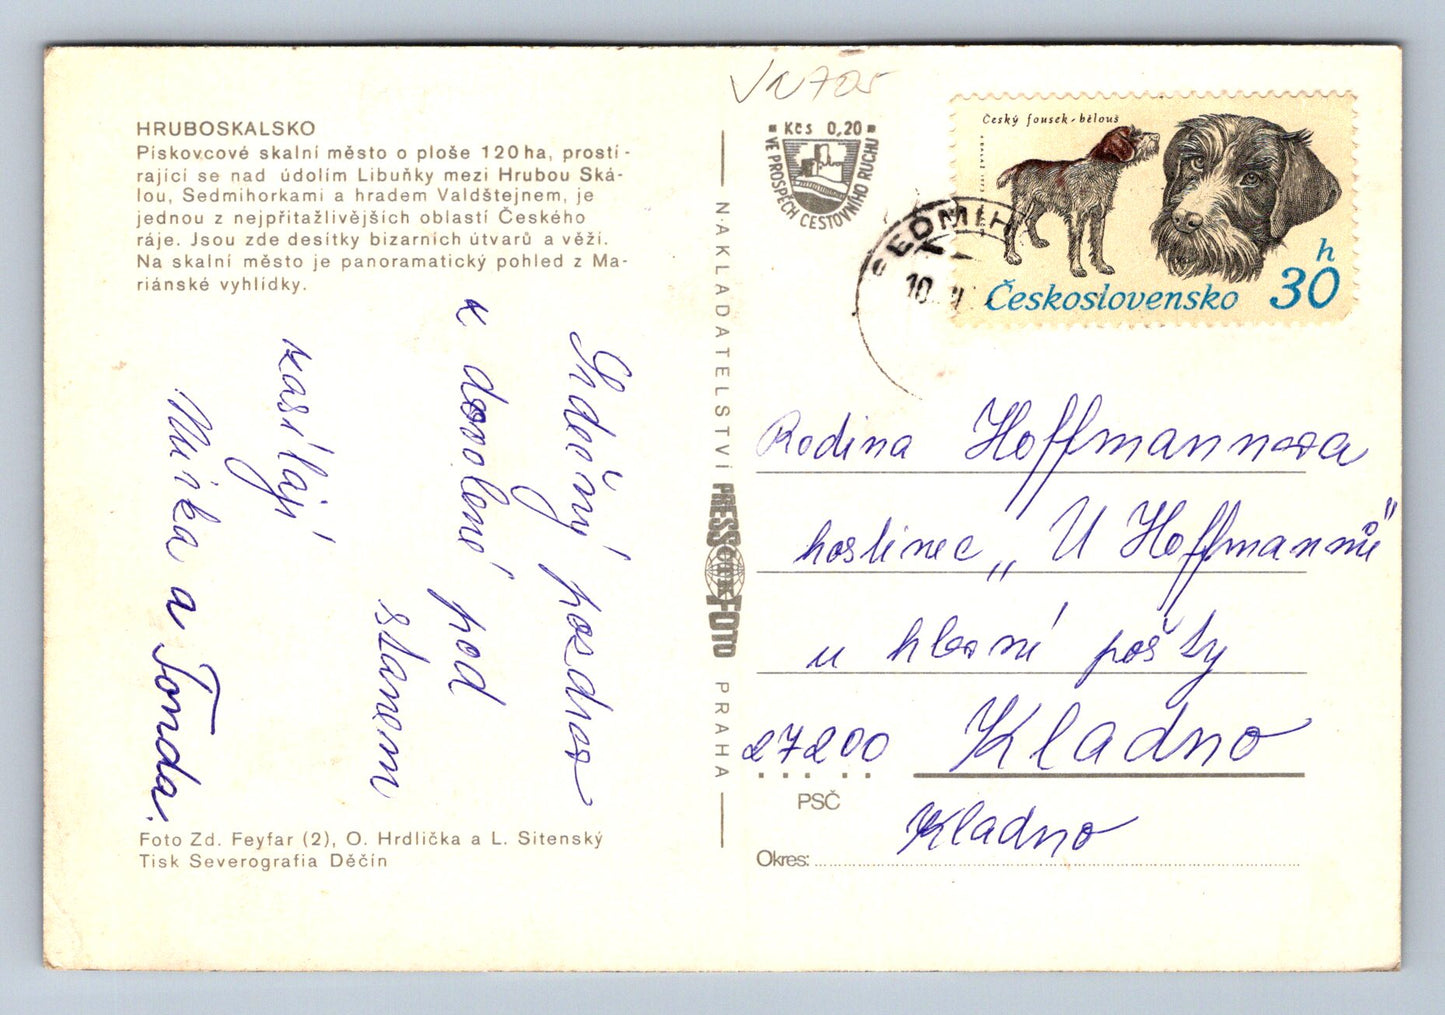 HRUBOSKALSKO
Pískovcové skalní město o ploše 120 ha, prostí-
rající se nad údolím Libuňky mezi Hrubou Ská-
lou, Sedmihorkami a hradem Valdštejnem, je
jednou z nejpřitažlivějších oblastí Českého
ráje. Jsou zde desítky bizarních útvarů a věží.
Na skalní město je panoramatický pohled z Ma-
riánské vyhlídky.
Srdečný pozdrav
z dovolené pod
stanem
zasílají
Mirka a Tonda.
Foto Zd. Feyfar (2), O. Hrdlička a L. Sitenský
Tisk Severografia Děčín
NAKLADATELSTVÍ
PRESSFOTO
PRAHA
Kčs 0,20
VE PROSPĚCH CESTOVNÍHO RUCHU
SEDMIH
10.
Český fousek - bělouš
Československo
30 h
Rodina Hoffmannova
hostinec „U Hoffmannů"
u hlavní pošty
27200 Kladno
PSČ
Kladno
Okres: